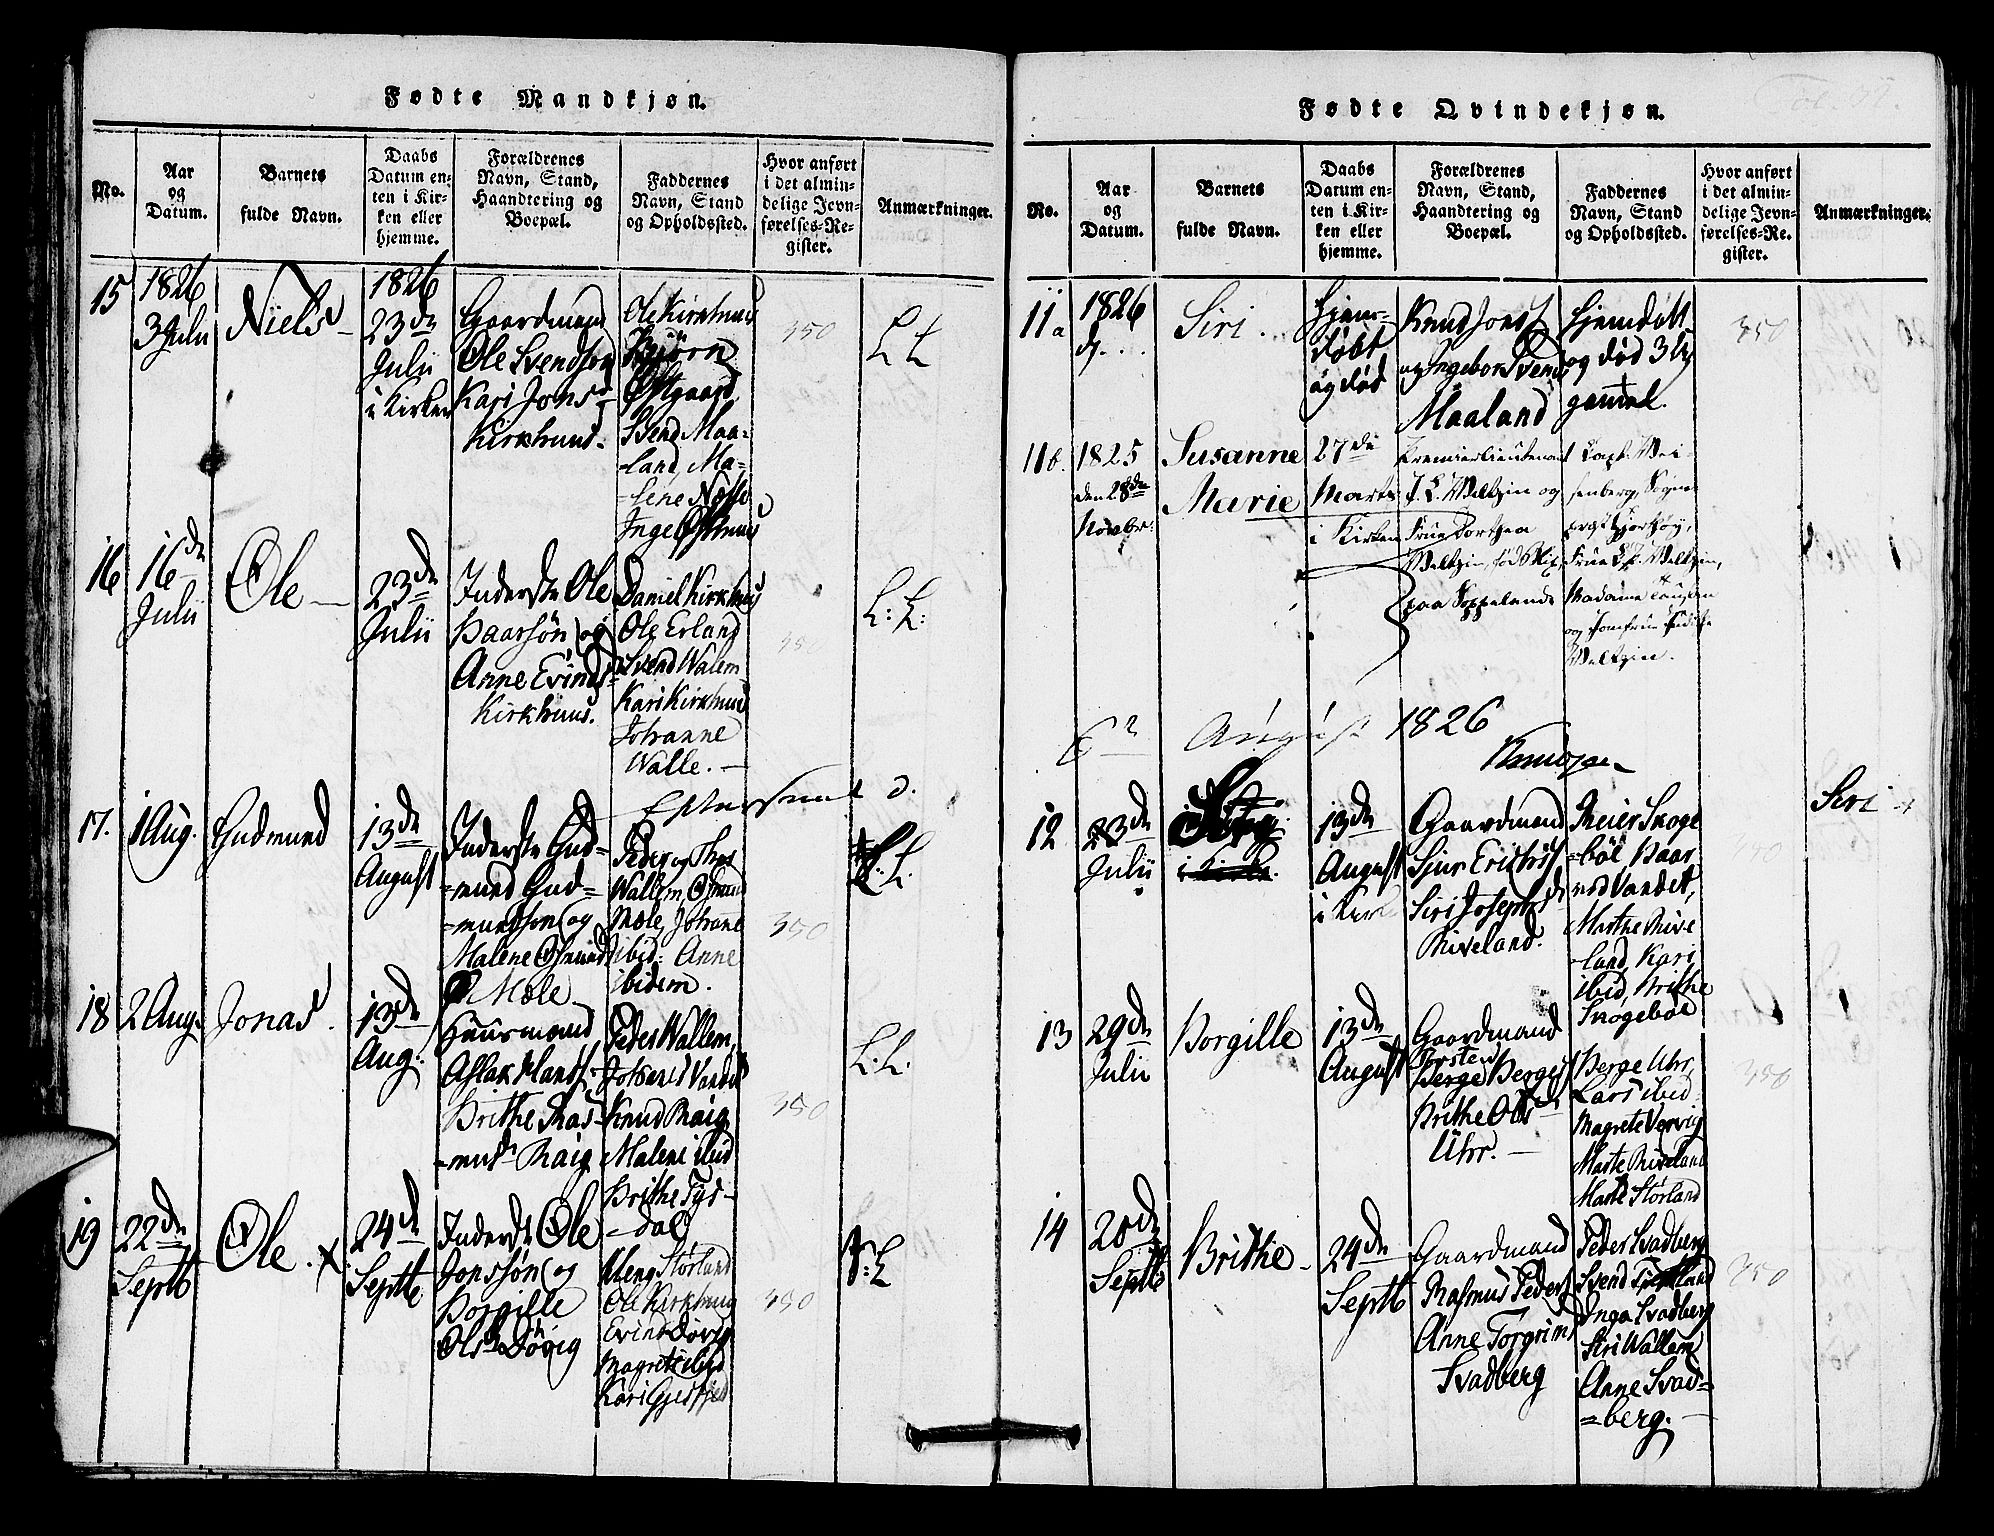 Fødte Mandkjøn.
No.
Aar
og
Datum.
Barnets
fulde Navn.
Daabs
Datum en-
ten i Kir-
ken eller
hjemme.
Forældrenes
Navn, Stand,
Haandtering og
Boepæl.
Faddernes
Navn, Stand
og Opholdssted.
Hvor anført
i det almin-
delige Jevn-
førelses-Re-
gister.
Anmærkninger.
15
1826
3 Julii
Niels
1826
23de
Julii
i Kirken
Gaardmand
Ole Svendsøn
Kari Jons
Kirkhuus.
Ole Kirkhuus
Bjørn
Østgaard,
Svend Maa-
land, Ma-
lene
Inge
350
L L
16
16de
Julii
Ole
23de
Julii
Inderste Ole
Baarsøn og
Anne Evinds
Kirkhuus.
Daniel Kirkhuus
Ole Erland
Svend Walem
Kari Kirkhuus
Johanne
Walle.
350
L: L:
17.
1 Aug.
Gudmund
13de
August
Inderste Gud-
mund Gud-
mundsøn og
Malene Osmunds
Mæle
Peder og
Wallem, Osmund
Mæle, Johane
ibid: Anne
ibidem.
350
L: L.
18
2 Aug.
Jonas.
13de
Aug:
Huusmand
Aslak Hans
Brithe Ras-
musd
Peder Wallem,
Johanes Vandet
Knud
Malene ibid
Brithe Tys-
dal
350
L: L.
19
22de
Septb
Ole.
24de
Septb
Inderste Ole
Jonssøn og
Borgille
Ols Døvig
Kleng Størland
Ole Kirkhuus
Evind Døvig
Magrete ibid
Kari
350
L
Fødte Qvindekjøn.
No.
Aar
og
Datum.
Barnets
fulde Navn.
Daabs
Datum en-
ten i Kir-
ken eller
hjemme.
Forældrenes
Navn, Stand,
Haandtering og
Boepæl.
Faddernes
Navn, Stand
og Opholdssted.
Hvor anført
i det almin-
delige Jevn-
førelses-Re-
gister.
Anmærkninger.
11a
1826
d. ...
Siri ...
Hjem-
døbt
og død
Knud Jons
og Ingebor Svends
Maaland
Hjemdøbt
og død 3 U
gamal.
350
11b.
1825
den 28de
Novbr:
Susanne
Marie
27de
Marts
i Kirken
Premierlieutenant
Weltzin og
Frue Dorthea
Weltzin, fød
paa Soppeland
Capt.
senberg, Sogne-
præst
Frue Weltzin,
Madame
og Jomfrue
Weltzin.
August 1826
12
23de
Julii
13de
August
i Kirk
Gaardmand
Sjur Erichs
Siri Josephsd
Riveland.
Reier Skoge-
bøe, Baar
Vandet,
Marthe Rive-
land, Kari
ibid, Brithe
Skogebøe
350
Siri
13
29de
Julii
Borgille
13de
August
Gaardmand
Torsten
Berge Berges
Brithe Ols
Uhr.
Berge Uhr,
Lars ibid
Magrete Vervig
Marte Riveland
Marte Størland
350
14
20de
Septb
Brithe
24de
Septb
Gaardmand
Rasmus Peders
Anne Torgrims
Svadberg
Peder Svadberg
Svend
Inga Svadberg
Siri Wallem
Anne Svad-
berg.
350